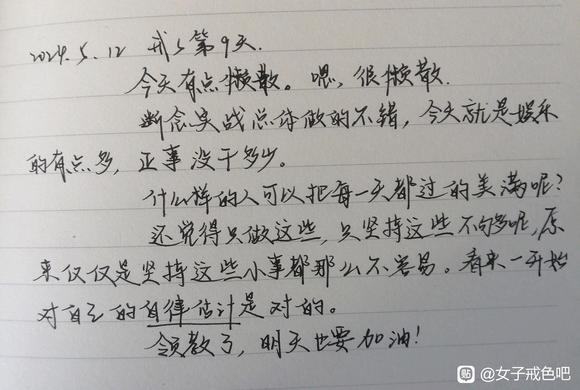 2024.5.12 戒s第9天.
今天有点懒散。嗯,很懒散.
断念实战总体做的不错,今天就是娱乐
的有点多,正事没干多少。
什么样的人可以把每一天都过的美满呢?
还觉得只做这些,只坚持这些不够多呢,原
来仅仅是坚持这些小事都那么不容易。看来一开始
对自己的自律估计是对的。
领教了,明天也要加油!
贴 @女子戒色吧